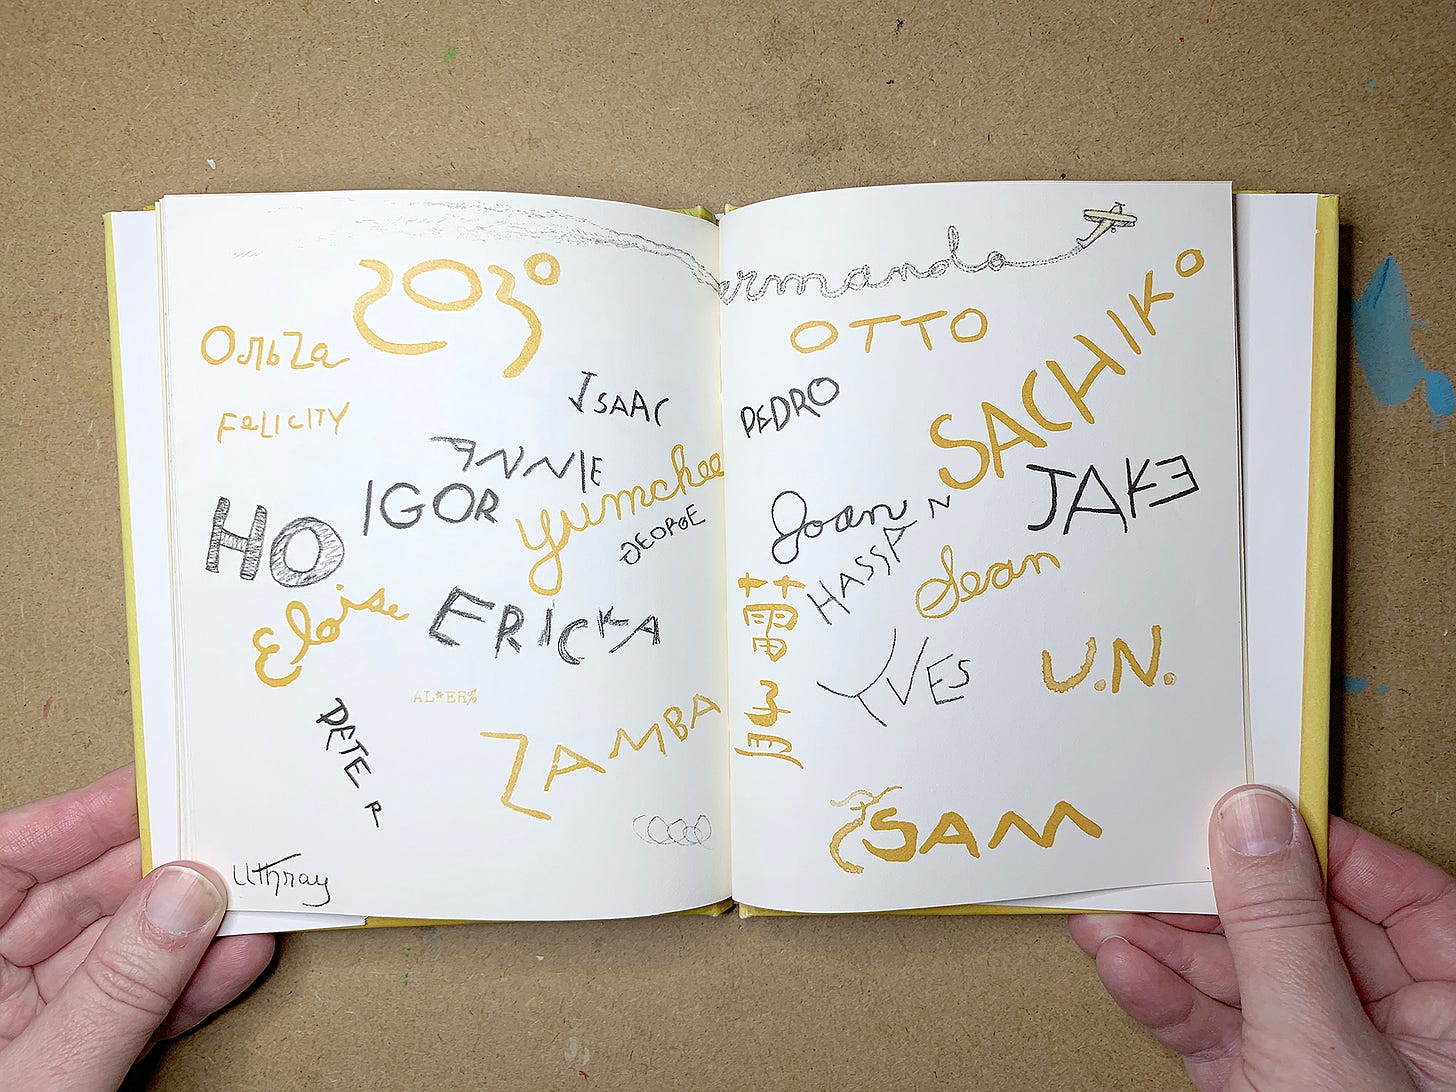 armando
Ольга
FeLICITY
ISAAC
ANNIE
IGOR
yumchee
GEORGE
HO
Eloise
ERICKA
AL*ER%
PETER
ZAMBA
Uthray
OTTO
SACHIKO
PEDRO
JAKE
Joan
HASSAN
Sean
YVES
U.N.
SAM